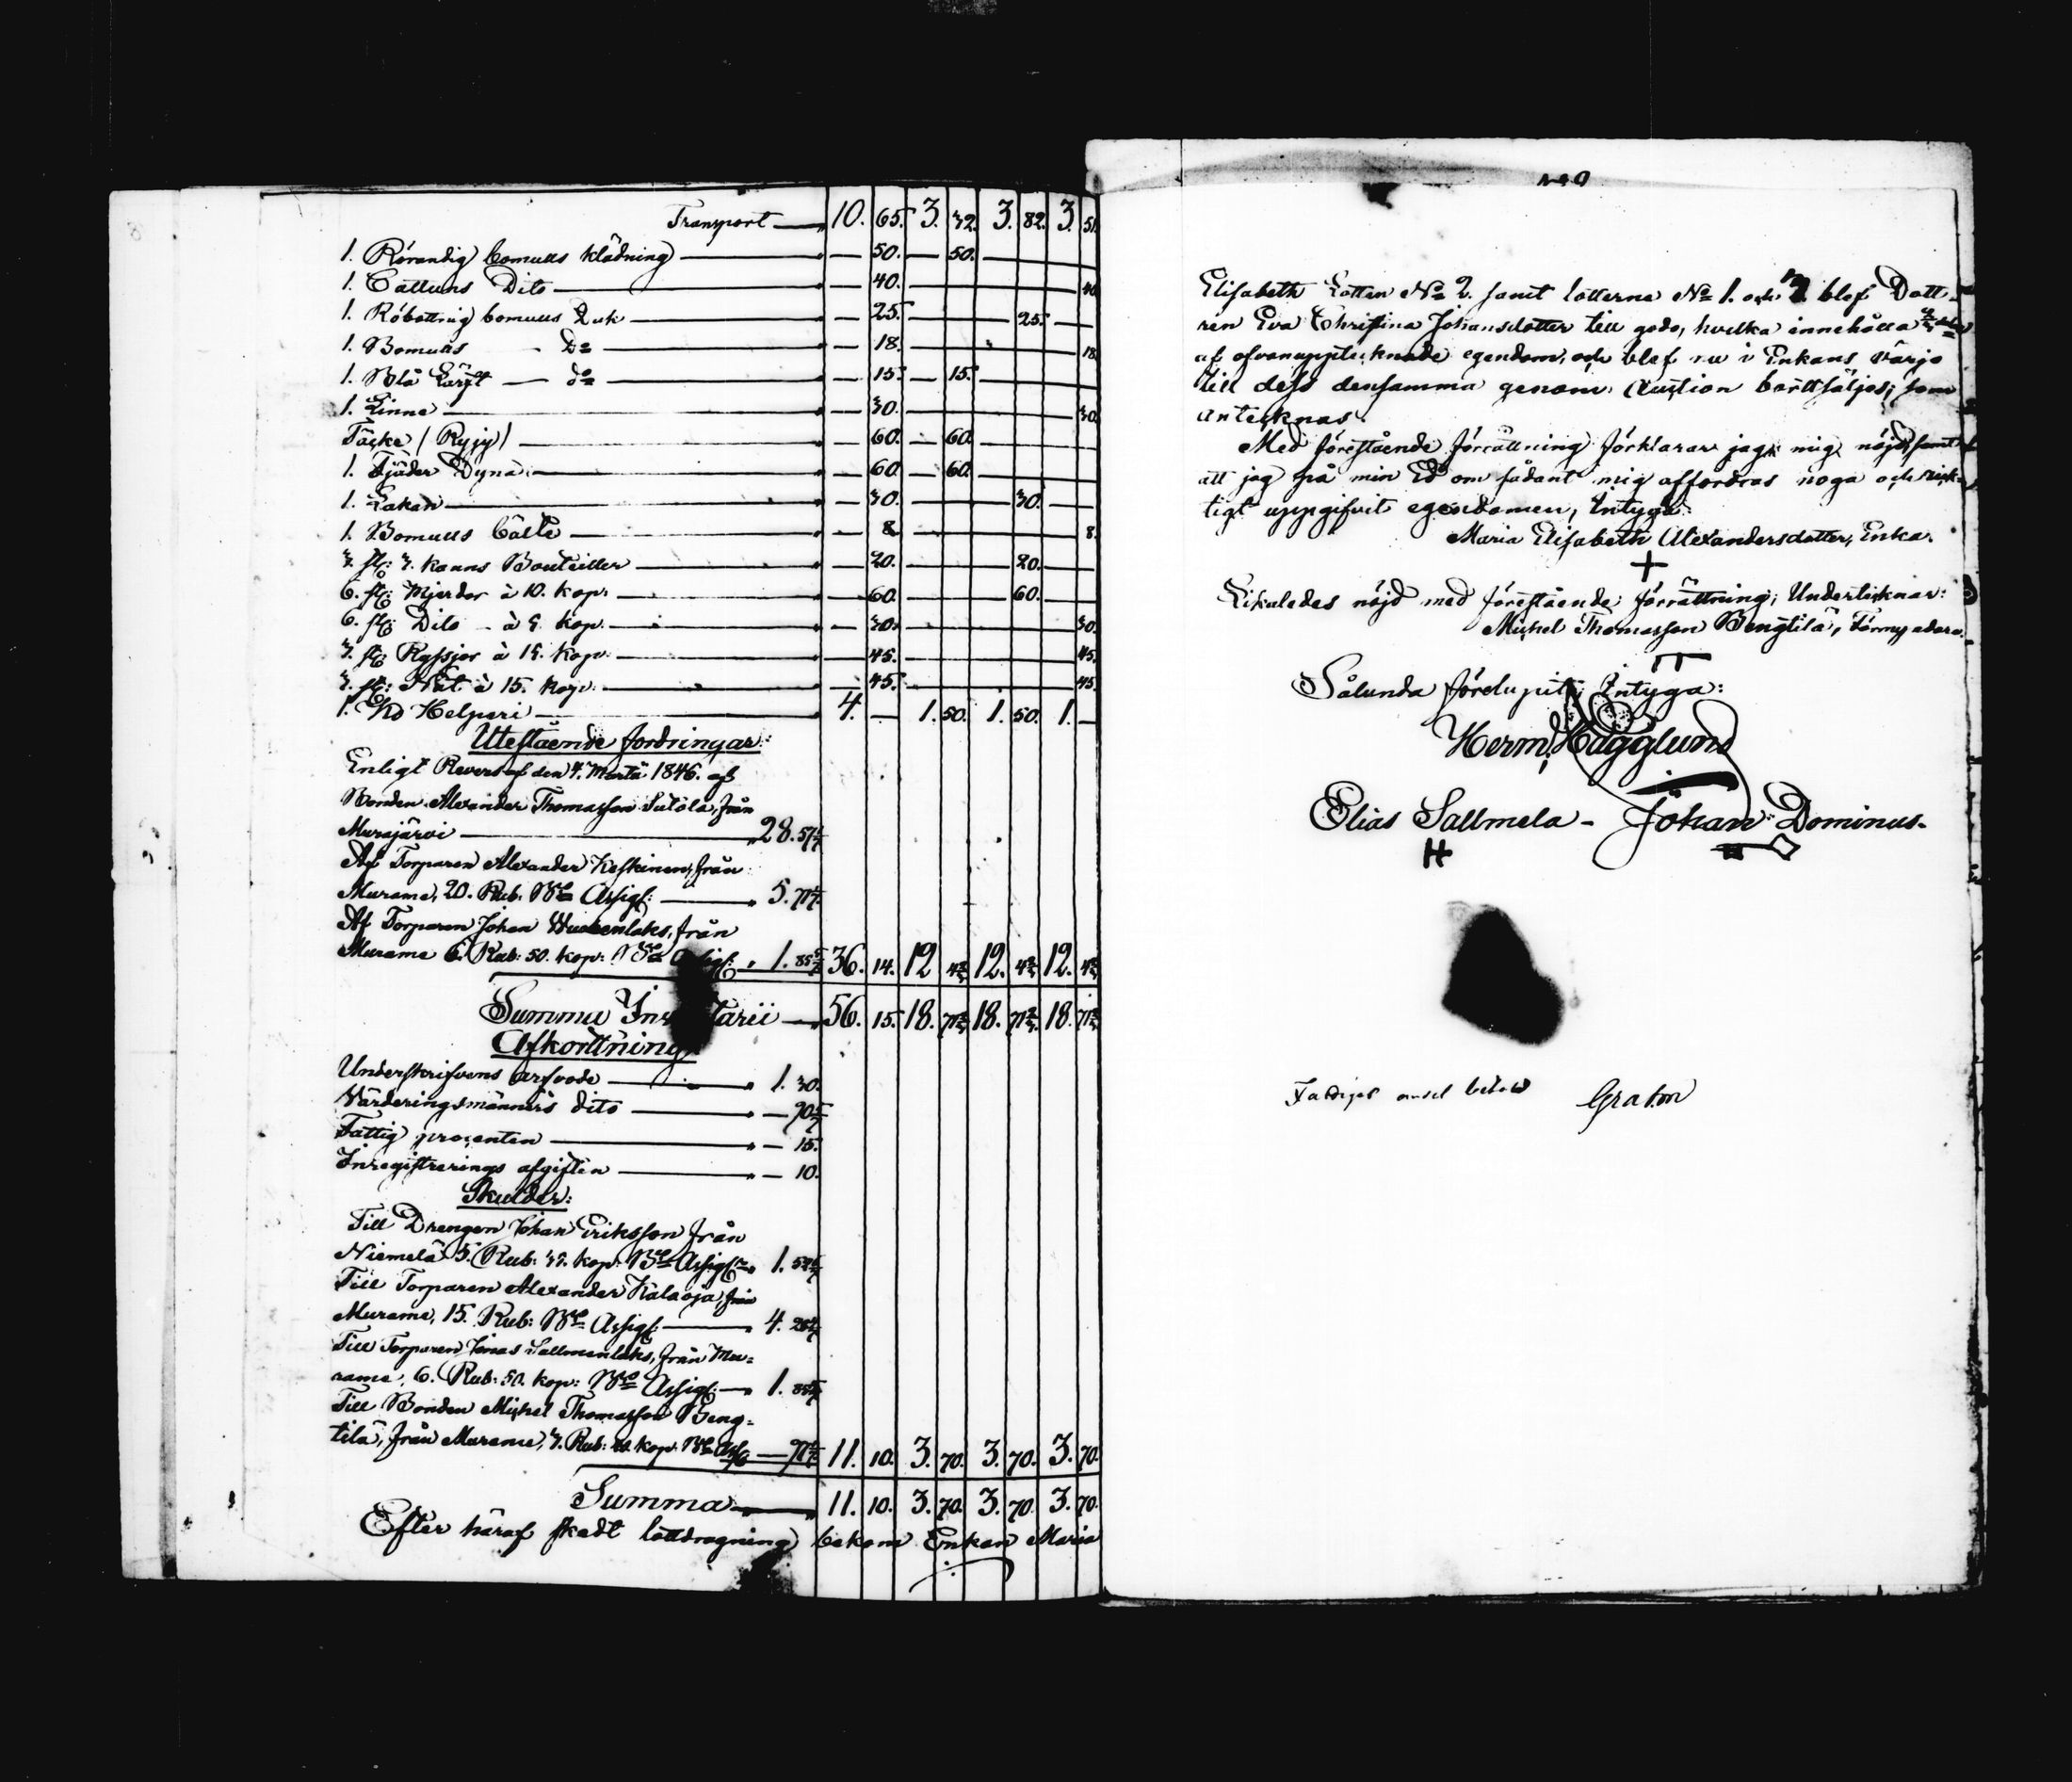 Transport — 10. 65. 3. 32. 3. 82. 3. 51.
1. Rörandig bomulls klädning — 50. — 50. —
1. Cattuns Dito — 40. — 40
1. Röbottnig bomulls Duk — 25. — 25. —
1. Bomulls — Do — 18. — 18.
1. Blå Lärft — do — 15. — 15. —
1. Linne — 30. — 30.
Täcke / Ryjy / — 60. — 60. —
1. Fjäder Dyna — 60. — 60. —
1. Lakan — 30. — 30. —
1. Bomulls Bälte — 8 — 8.
3. st: 3. kanns Bouteiller — 20. — 20. —
6. st: Mjerdor à 10. kop: — 60. — 60. —
6. st: Dito - à 5. kop. — 30. — 30.
3. st: Ryssjor à 15. kop: — 45. — 45.
3. st: Nät à 15. kop: — 45. — 45.
1. Ko Helperi — 4. — 1. 50. 1. 50. 1. —
Utestående fordringar:
Enligt Revers af den 4. Martii 1846. af
Bonden Alexander Thomasson Sutola, från
Murajärvi — 28. 57 1/7
Af Torparen Alexander Keskinen, från
Murame, 20. Rub: Bco Assigt: — 5. 71 3/7
Af Torparen Johan från
Murame 6. Rub: 50. kop: Bco 1. 85 5/7 36. 14. 12 4 2/3 12. 4 2/3 12. 4 2/3
Summa — 56. 15. 18. 71 2/3 18. 71 2/3 18. 71 2/3
Afkortning
Underskrifvens arfvode — 1. 30.
Värderingsmännens dito — 90 5/7
Fattig procenten — 15.
Inregistrerings afgiften — 10.
Skulder:
Till Drengen Johan Eriksson från
Niemelä 5. Rub: kop: Bco Assigt: 1.
Till Torparen Alexander Kalaoja, från
Murame, 15. Rub: Bco Assigt: — 4. 28 4/7
Till Torparen Jonas Sallmenlaks, från Mu=
rame, 6. Rub: 50. kop: Bco Assigt: — 1. 85 5/7
Till Bonden Mickel Thomasson Beng=
tilä, från Murame, 3. Rub: 40. kop: Bco Ass — 97 1/7 11. 10. 3. 70. 3. 70. 3. 70.
Summa — 11. 10. 3. 70. 3. 70. 3. 70.
Efter häraf skedt lottdragning bekom Enkan Maria
Elisabeth Lotten No 2. samt lotterne No 1. och 3 blef Dott=
ren Eva Christina Johansdotter till godo, hvilka innehålla 2/3 delar
af ofvanupptecknade egendom, och blef nu i Enkans värjo
till dess densamma genom Auction borttsäljes; som
antecknas.
Med förestående förrättning förklarar jag mig nöjd, samt
att jag på min Ed om sådant mig affordras noga och rick=
tigt uppgifvit egendomen, Intyga:
Maria Elisabeth Alexandersdotter, Enka.
Likaledes nöjd med förestående förrättning; Undertecknar:
Mickel Thomasson Bengtilä, Förmyndare.
Sålunda förelupit; Intyga:
Herm. Hägglund
Elias Sallmela - Johan Dominus.